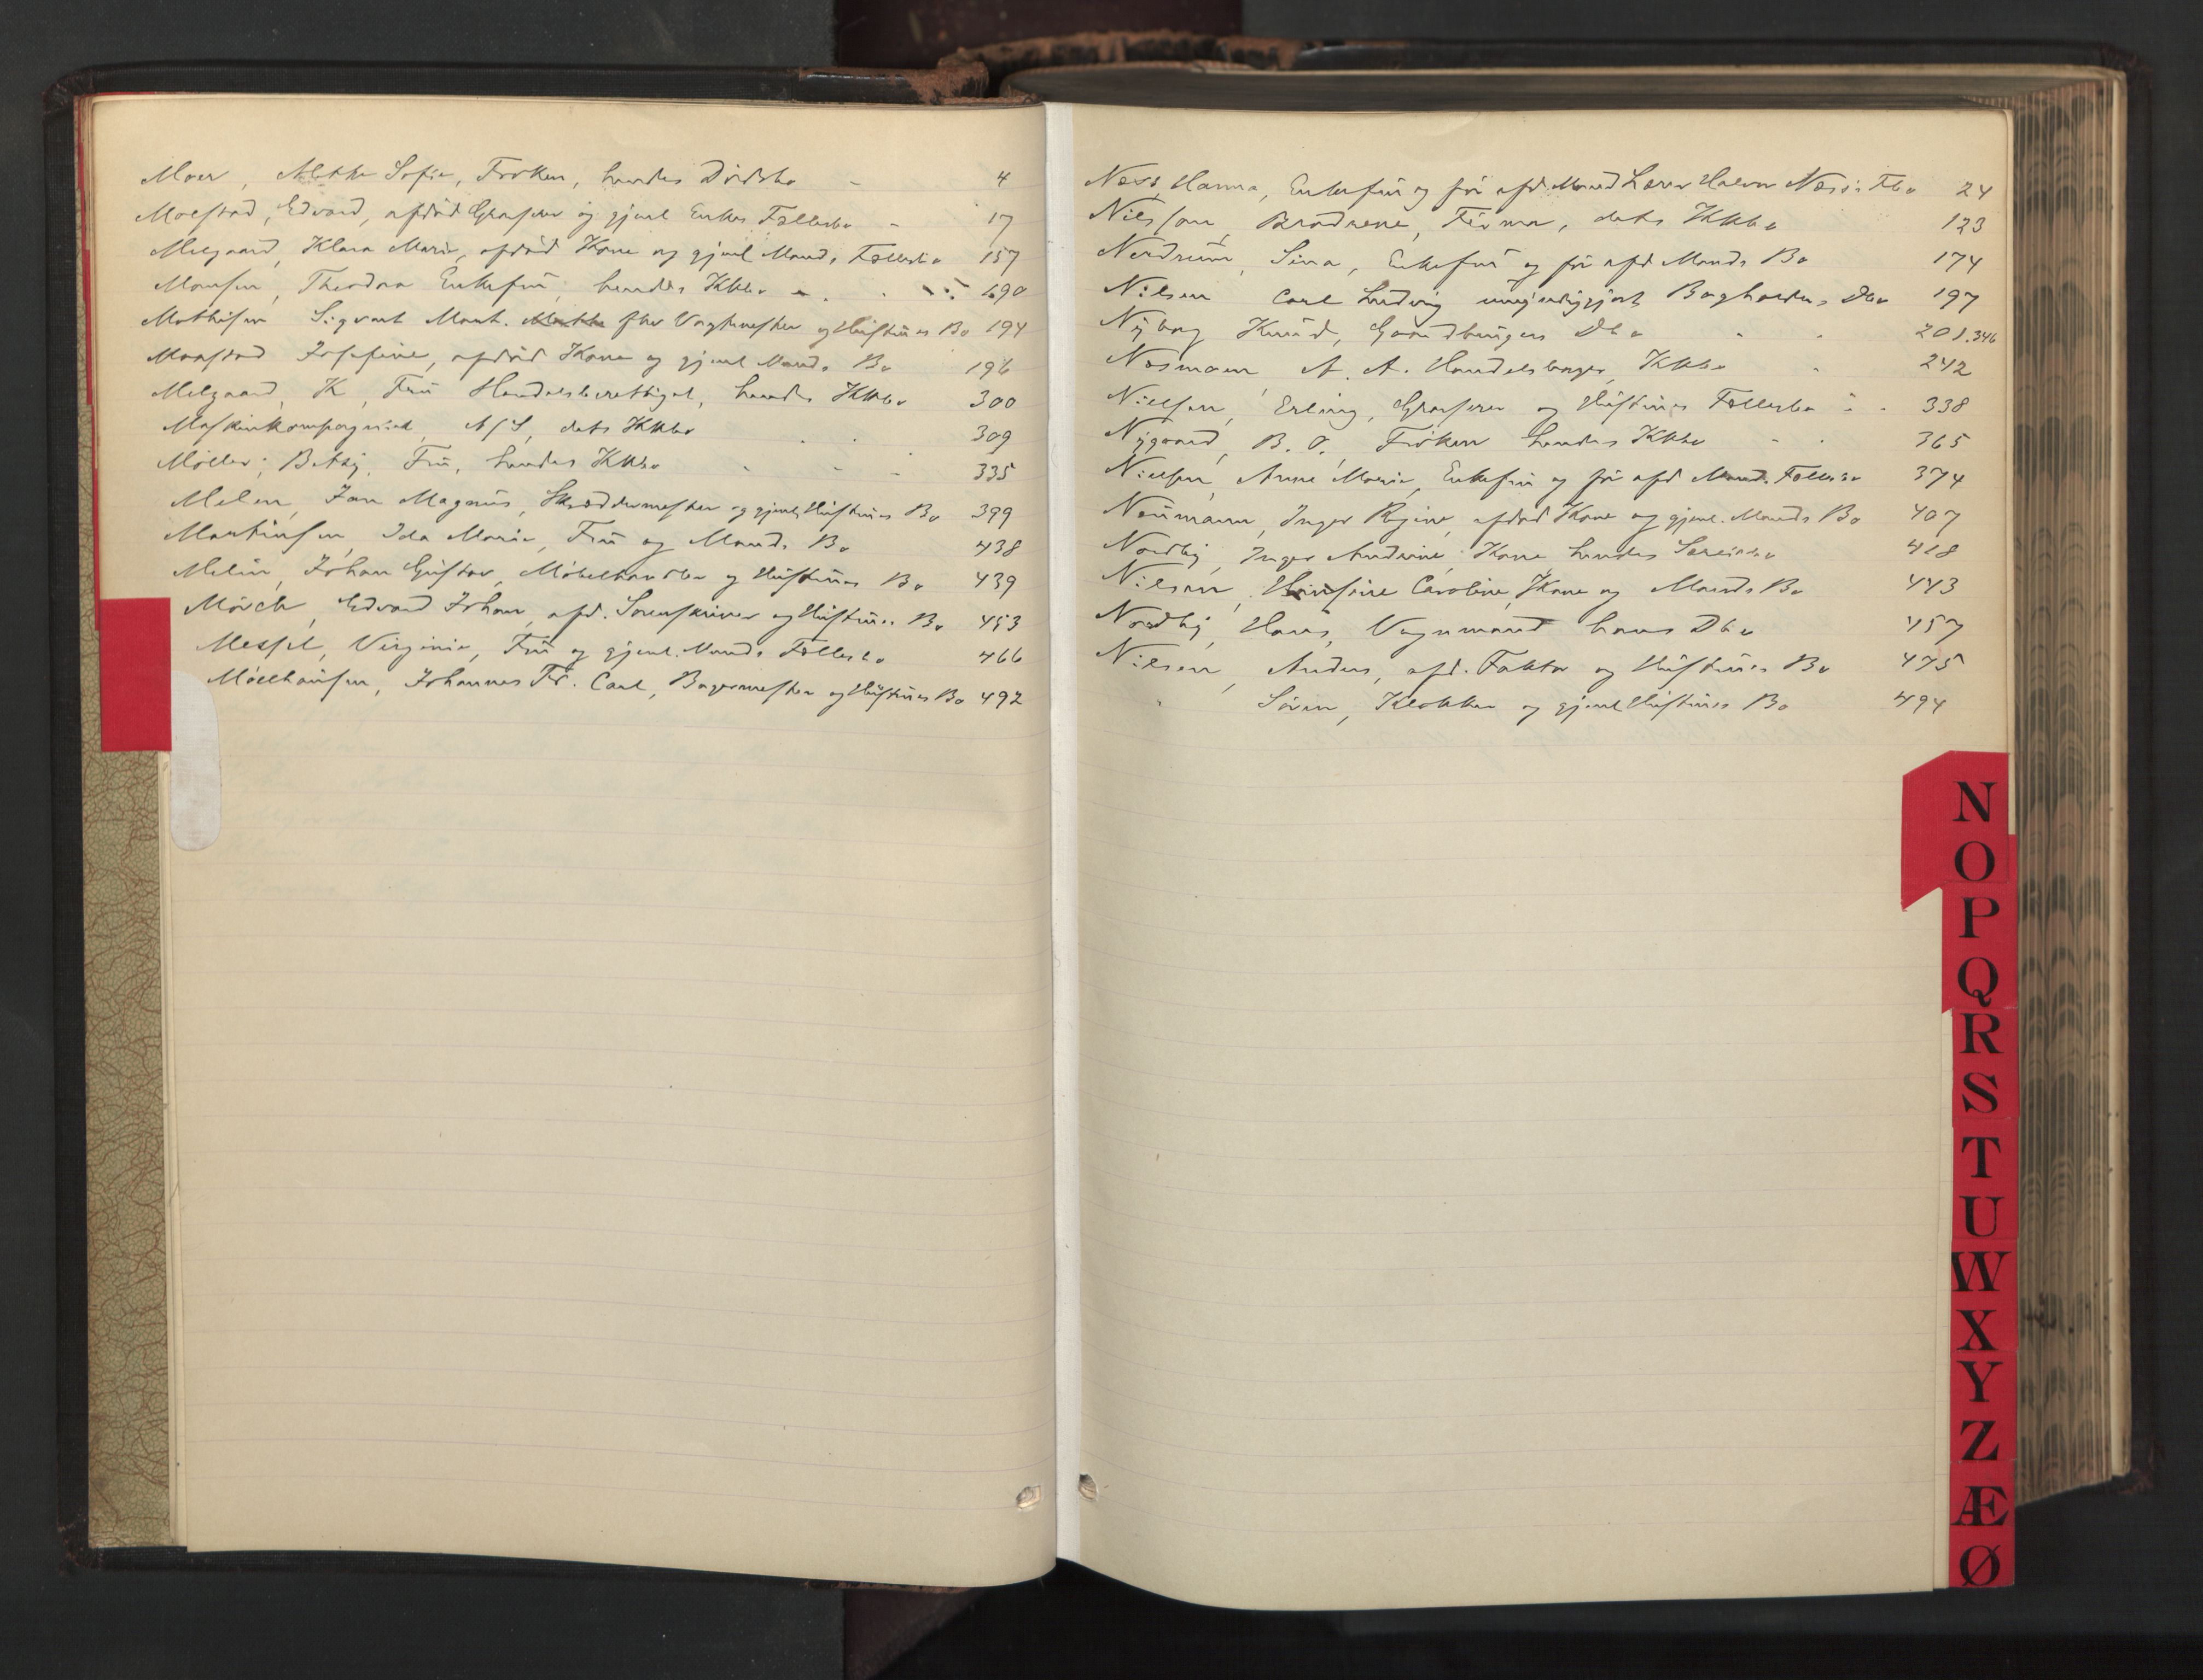 Moer, Alethe Sofie, Frøken, hendes Dødsbo - 4
Moestad, Edvard, afdød Grosserer og gjenl Enkes Fællesbo - 17
Melgaard, Klara Marie, afdød Kone og gjenl Mands Fællesbo 157
Monsen, Theodora Enkefrü, hendes Kkbo 190
Mathisen Sigvart Mont. fhv Vagtmester og Hüstrües Bo 194
Moastad Josefine, afdød Kone og gjenl Mands Bo 196
Melgaard, K, Frü Handelsberettiget, hendes Kkbo 300
Maskinkompagniet, A/S, dets Kkbo 309
Møller, Betsy, Frü, hendes Kkbo 335
Melin, Jan Magnüs, Skræddermester og gjenl Hüstrües Bo 399
Martinsen, Ida Marie, Frü og Mands Bo 438
Melin, Johan Güstav, Møbelhandler og Hüstrües Bo 439
Mørch, Edvard Johan, afd. Sorenskriver og Hüstrües Bo 453
Messel, Virginie, Frü og gjenl. Mands Fællesbo 466
Møelhaüsen, Johannes Fr. Carl, Bagermester og Hüstrües Bo 492
Næss, Hanna, Enkefrü og før afd. Mand Lærer Halvor Næss's Fbo 24
Nilsson, Brødrene, Firma, dets Kkbo 123
Nerdrüm, Sina, Enkefrü og før afd Mands Bo 174
Nilsen Carl Ludvig umyndiggjort Bogholders Dbo 197
Nyborg Knüd, Gaardbrügers Dbo 201.346
Nosmann A. A. Handelsborger, Kkbo 242
Nielsen, Erling, Grosserer og Hüstrües Fællesbo 338
Nygaard, B. O. Frøken hendes Kkbo 365
Nielsen, Anne Marie, Enkefrü og før afd Mands Fællesbo 374
Neümann, Inger Regine, afdød Kone og gjenl. Mands Bo 407
Nordby, Inger Andrine, Kone hendes Særeiebo 418
Nilsen, Hansine Caroline, Kone og Mands Bo 443
Nordby, Hans, Vognmand hans Dbo 457
Nilsen, Anders, afd. Faktor og Hüstrües Bo 475
" Søren, Klokker og gjenl Hüstrües Bo 494
N
O
P
Q
R
S
T
U
W
X
Y
Z
Æ
Ø